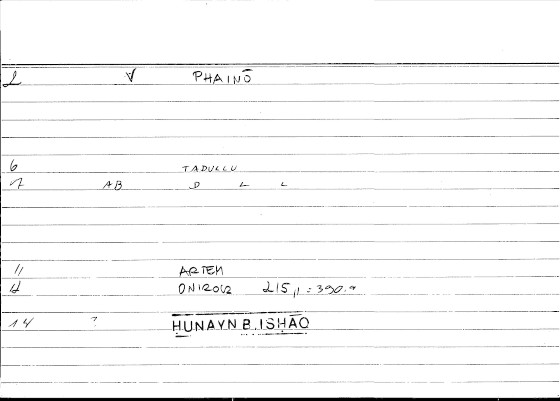 2 ∀ PHAINŌ
6 TADULLU
7 AB D L L
11 ARTEM
12 ONIROCR 215,11 : 390.9
14 ? HUNAYN B. ISHĀQ